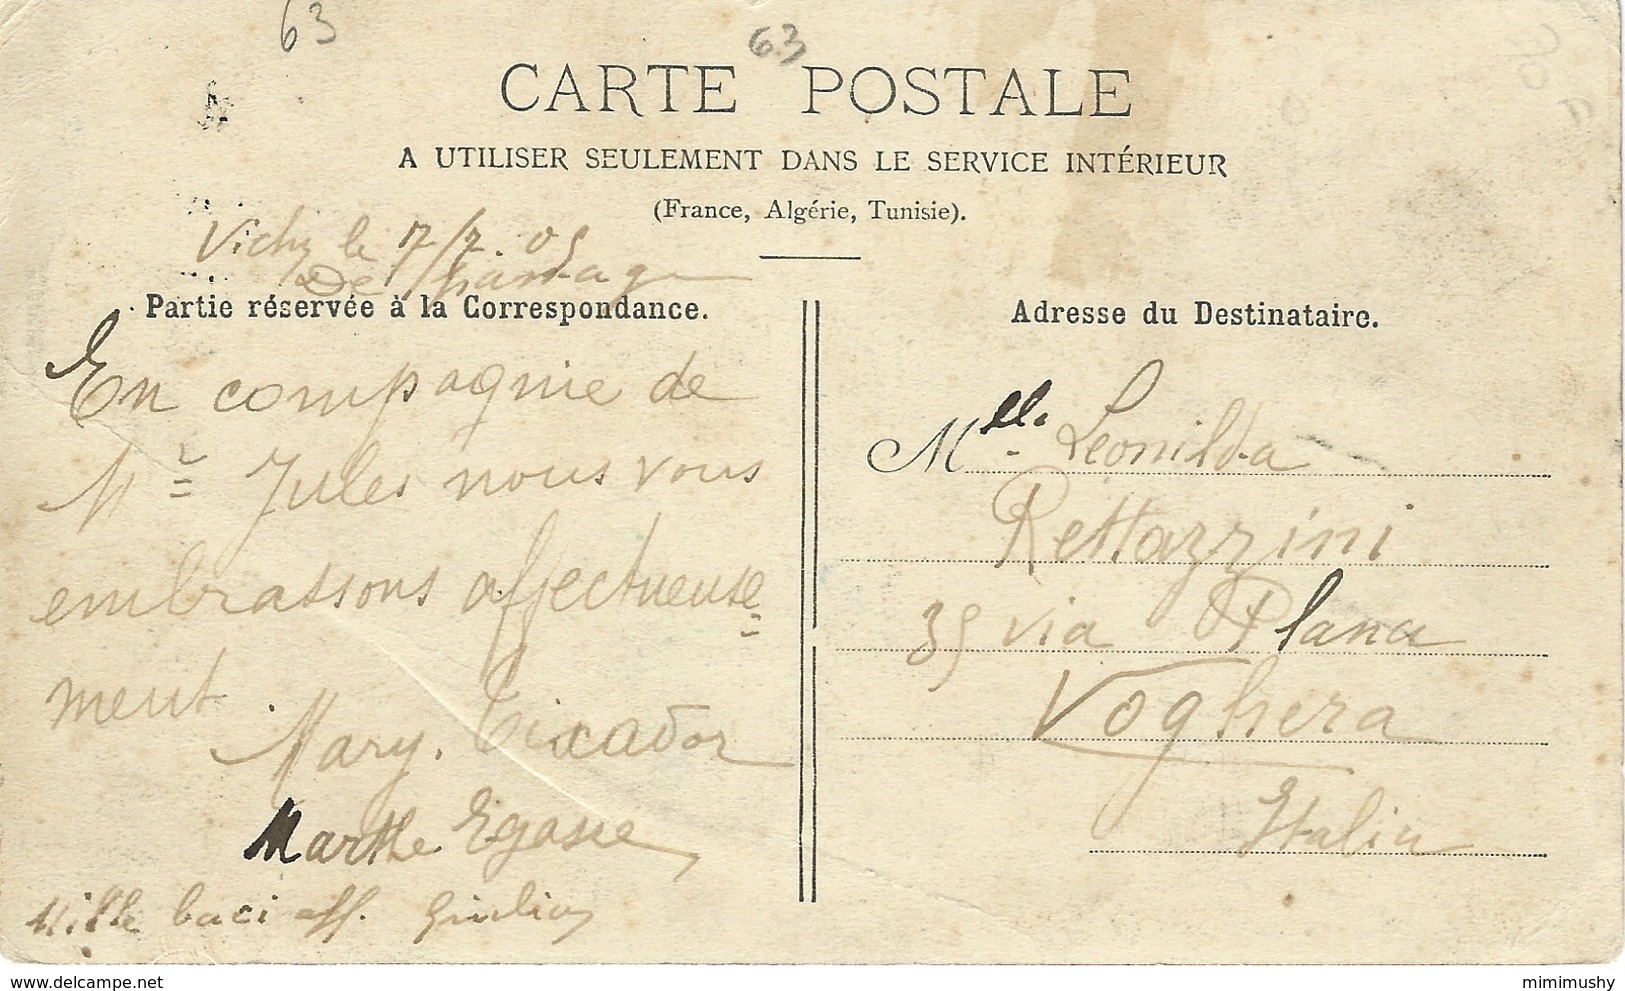 63
63
CARTE POSTALE
A UTILISER SEULEMENT DANS LE SERVICE INTÉRIEUR
(France, Algérie, Tunisie).
Vichy le 7/7. 05
De passage
Partie réservée à la Correspondance.
En compagnie de
Mr Jules nous vous
embrassons affectueuse=
ment.
Mary. Ticador
Marthe Egasse
Mille baci aff. Giulia
Adresse du Destinataire.
Melle. Leonilda
Rettazzini
35 via Plana
Voghera
Italia
delcampe.net
mimimushy